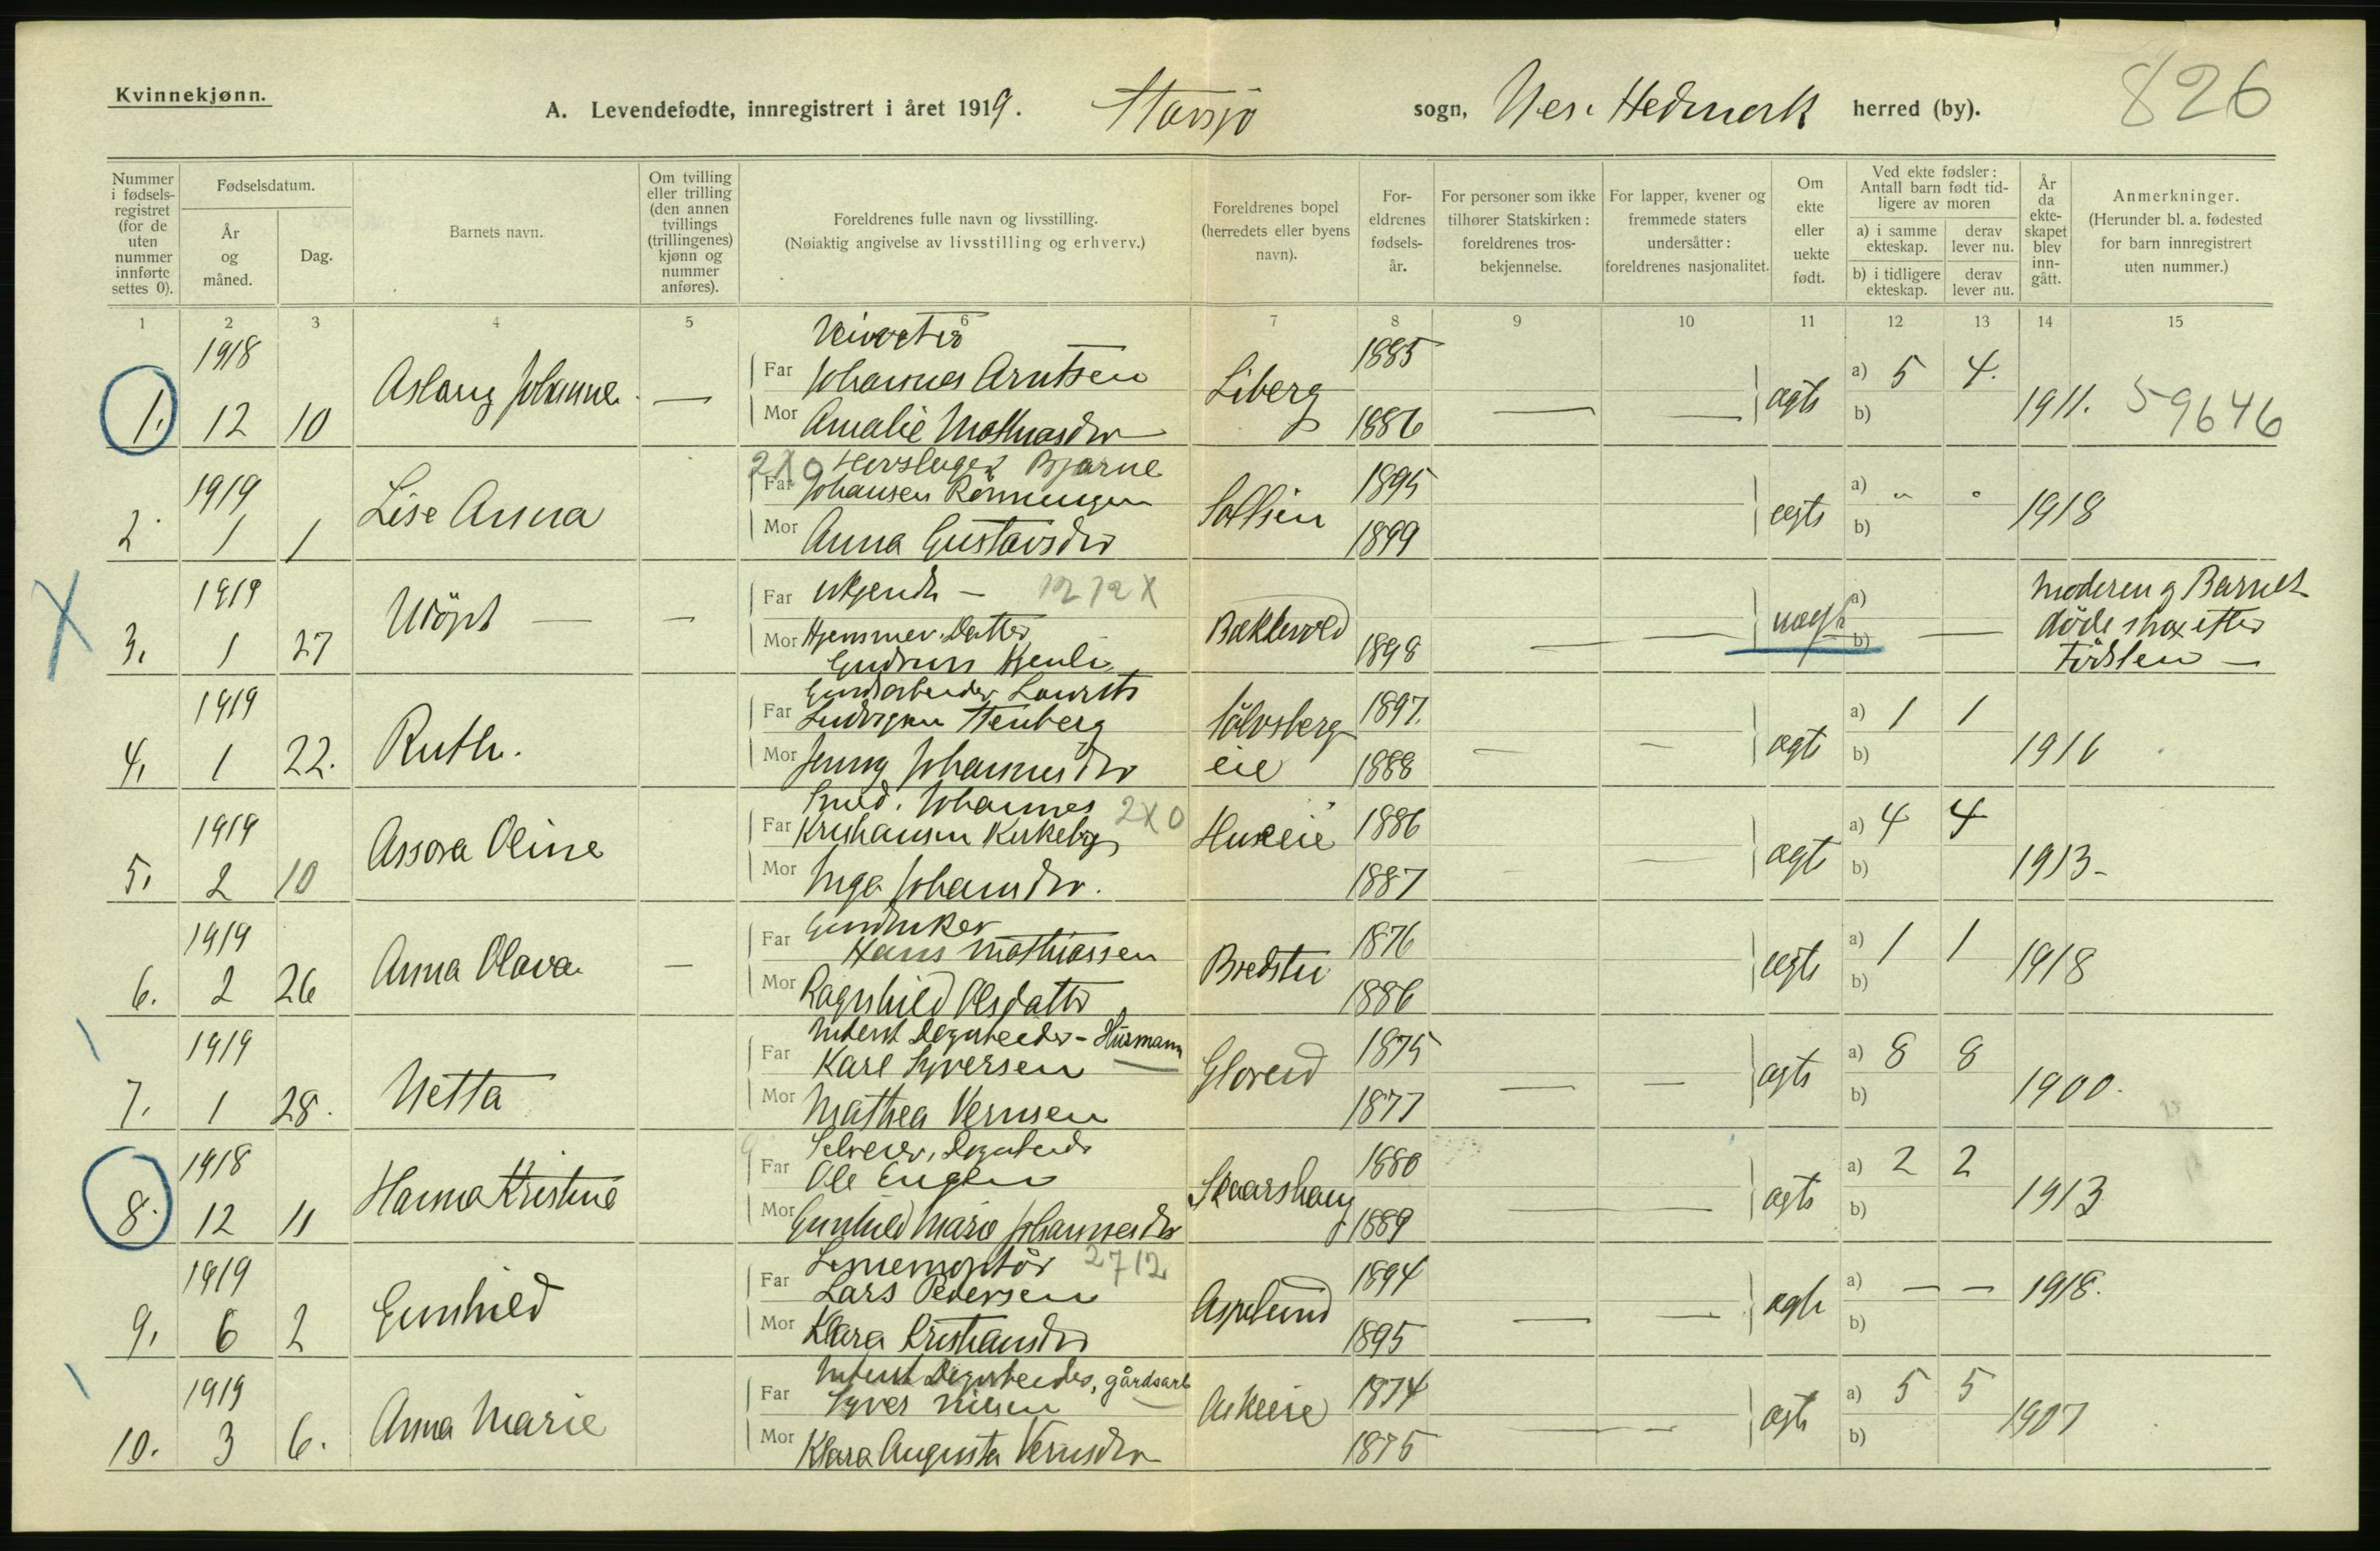 Kvinnekjønn.
A. Levendefødte, innregistrert i året 1919. Stavsjø sogn, Nes. Hedmark herred (by). 826
Nummer i fødselsregistret (for de uten nummer innførte settes 0).
Fødselsdatum.
År og måned.
Dag.
Barnets navn.
Om tvilling eller trilling (den annen tvillings (trillingenes) kjønn og nummer anføres).
Foreldrenes fulle navn og livsstilling.
(Nøiaktig angivelse av livsstilling og erhverv.)
Foreldrenes bopel (herredets eller byens navn).
Foreldrenes fødselsår.
For personer som ikke tilhører Statskirken: foreldrenes trosbekjennelse.
For lapper, kvener og fremmede staters undersåtter: foreldrenes nasjonalitet.
Om ekte eller uekte født.
Ved ekte fødsler: Antall barn født tidligere av moren
a) i samme ekteskap. derav lever nu.
b) i tidligere ekteskap. derav lever nu.
År da ekteskapet blev inngått.
Anmerkninger.
(Herunder bl. a. fødested for barn innregistrert uten nummer.)
1 2 3 4 5 6 7 8 9 10 11 12 13 14 15
1918
1. 12 10 Aslaug Johanne. —
Far Johannes Arntsen
Mor Amalie Mathiasdtr
Liberg 1885 1886 — — ægte a) 5 4. b) 1911. 59646
1919
2. 1 1 Lise Anna
2X0 Bjarne
Far Johansen Rønningen
Mor Anna Gustavsdtr
1895 1899 ægte a) " " b) 1918
1919
3. 1 27 Udöpt — —
Far ukjendt — 1212X
Mor Hjemmev. Datter
Gudrun
1898 — — uægte a) b) —
Moderen og Barnet
døde strax efter
Födslen —
1919
4. 1 22. Ruth.
Laurits
Far Ludvigsen Stenberg
Mor Jenny Johannesdtr
Sölvsberg
eie
1897. 1888 — — ægte a) 1 1 b) 1916
1919
5. 2 10 Assora Oline
Smed. Johannes 2X0
Far Kristiansen Kirkeby
Mor Inga Johansdtr.
Huseeie 1886 1887 — — ægte a) 4 4 b) 1913-
1919
6. 2 26 Anna Olava. —
Gaardbruker
Far Hans Mathiassen
Mor Ragnhild Olsdatter
Bredstu 1876 1886 ægte a) 1 1 b) 1918
1919
7. 1 28. Netta
Dagarbeider - Husmann
Far Karl Syversen —
Mor Mathea Vernsen
Gloreid 1875 1877 — — ægte a) 8 8 b) 1900.
1918
8. 12 11 Hanna Kristine
Selveier, Dagarbeid
Far Ole Engen
Mor Gunhild Marie Johannesdtr
Skaarshaug 1880 1889 — — ægte a) 2 2 b) 1913
1919
9. 6 2 Gunhild
Linjemontör 2712
Far Lars Pedersen
Mor Klara Kristiansdtr
Aspelund 1894 1895 — — ægte a) — — b) 1918.
1919
10. 3 6. Anna Marie
Dagarbeider, gårdsarb
Far Syver Nilsen
Mor Klara Augusta Vernsdtr
1874 1875 — — ægte a) 5 5 b) 1907